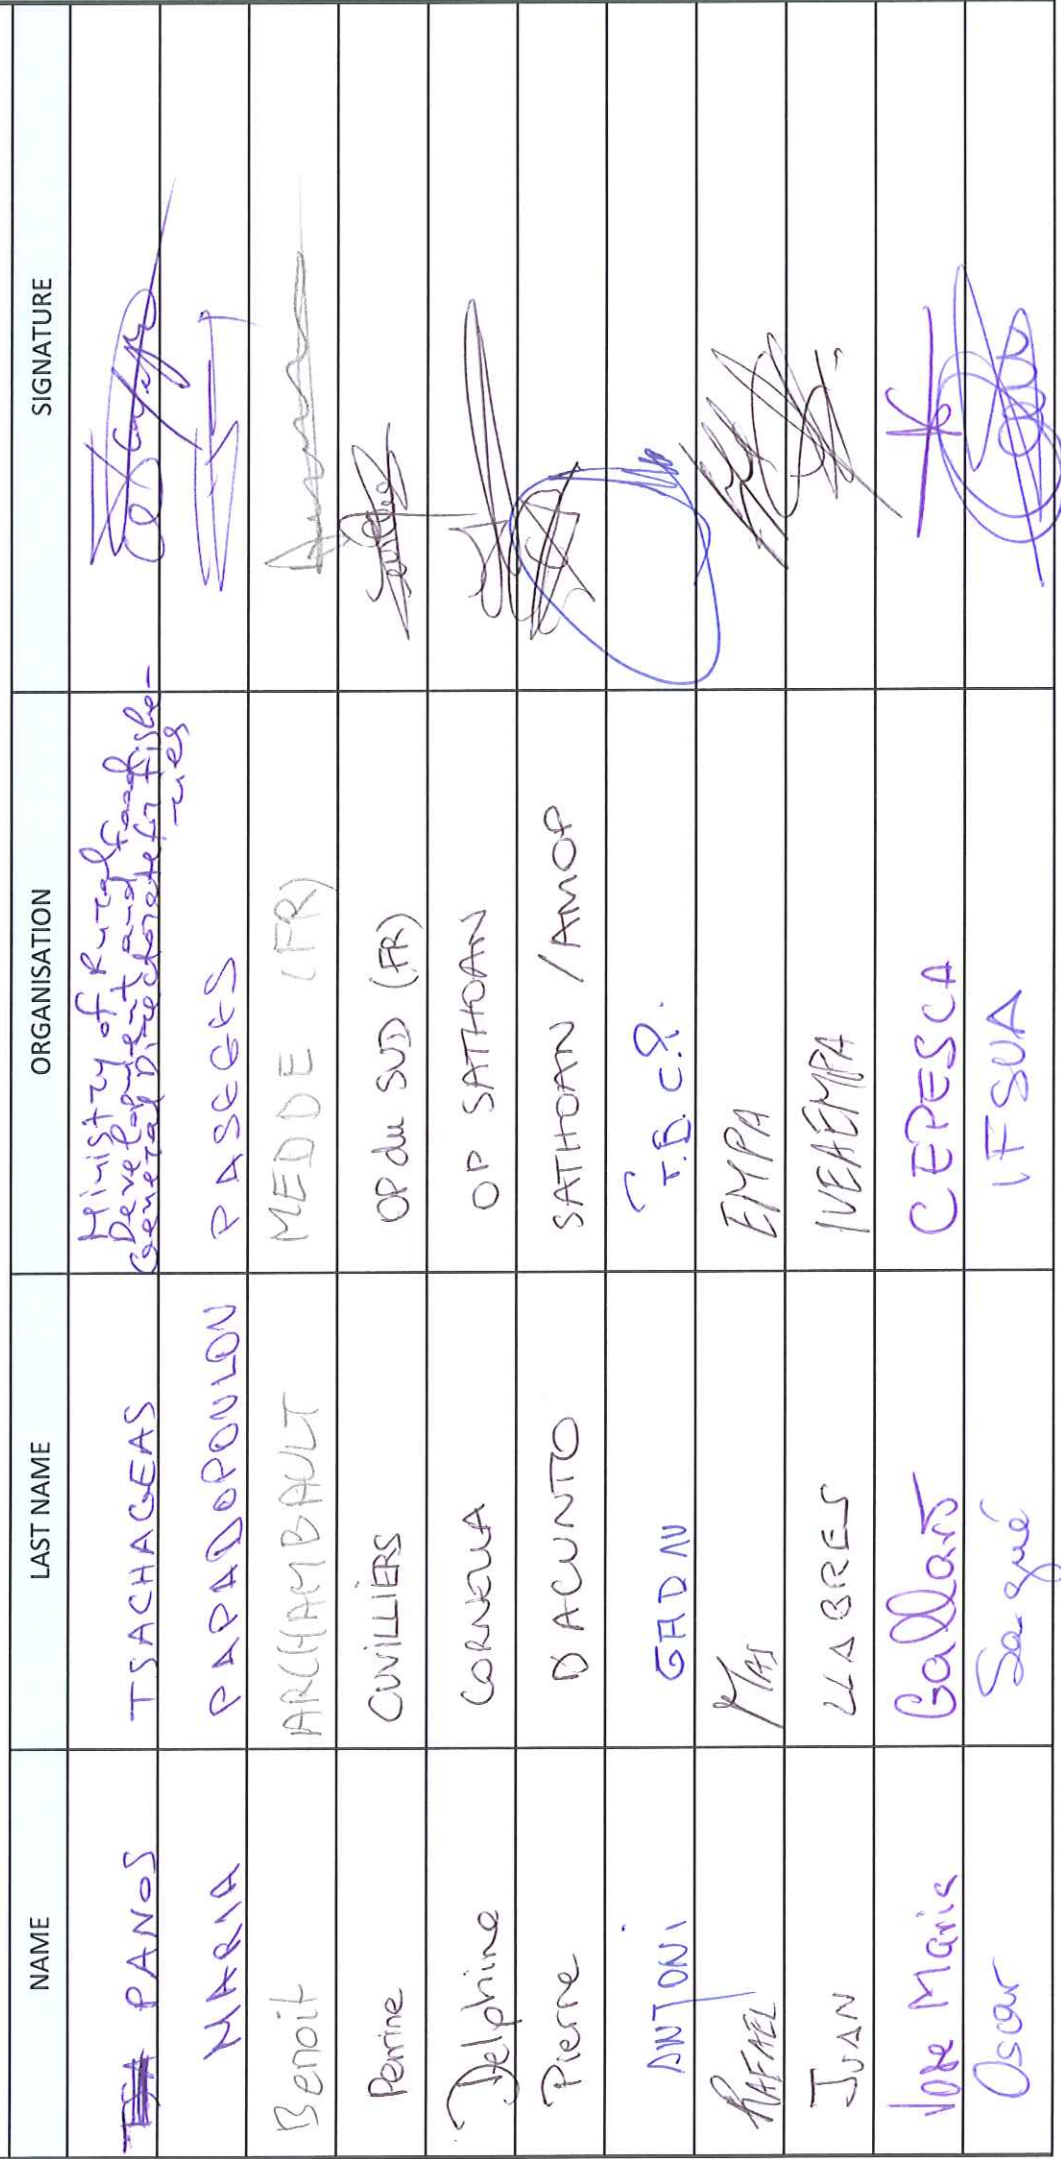 NAME LAST NAME ORGANISATION SIGNATURE
PANOS TSACHAGEAS Ministry of Rural
Development and Food
General Directorate for Fishe-
ries
MARIA PAPADOPOULOU PASEGES
Benoit ARCHAMBAULT MEDDE (FR)
Perrine CUVILLIERS OP du SUD (FR)
Delphine CORNELLA OP SATHOAN
Pierre D ACUNTO SATHOAN / AMOP
ANTONI
RAFAEL MAS EMPA
JUAN LLABRES
Jose Maria Gallart CEPESCA
Oscar Sagué IFSUA